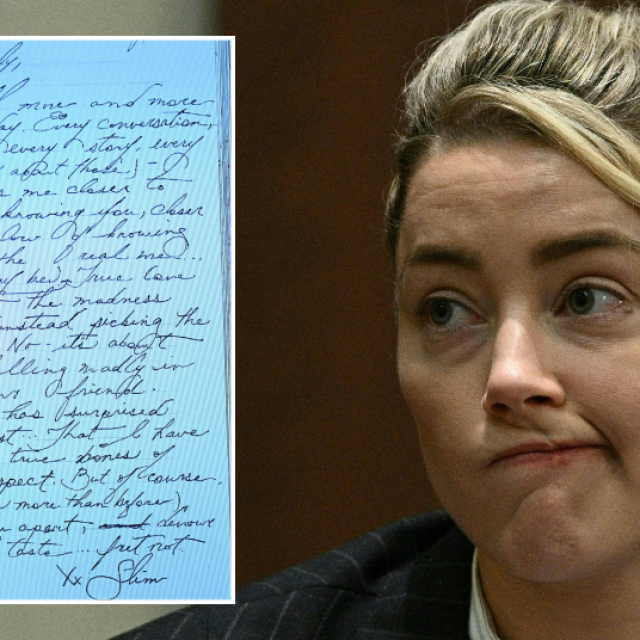 mne and more
Every conversation,
every story, every
about those) - I
me closer to
knowing you, closer
of knowing
the real me...
True love
the madness
instead picking the
No - its about
falling madly in
friend.
has surprised
That I have
true bones of
But of course.
more than before)
apart, devour
taste... fret not.
Xx Slim